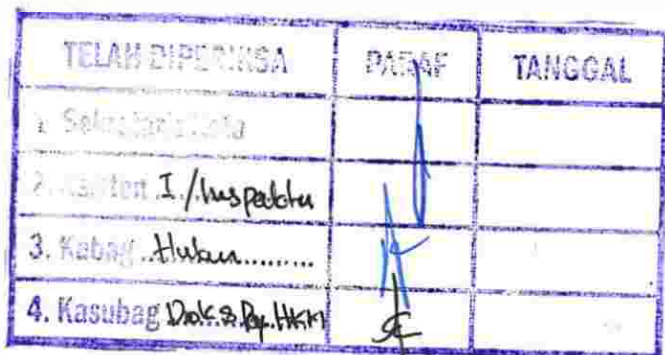 TELAH DIPERIKSA PARAF TANGGAL
1. Sekretaris Kota
2. Asisten I./Inspektur
3. Kabag ..Hukum.........
4. Kasubag Dok &